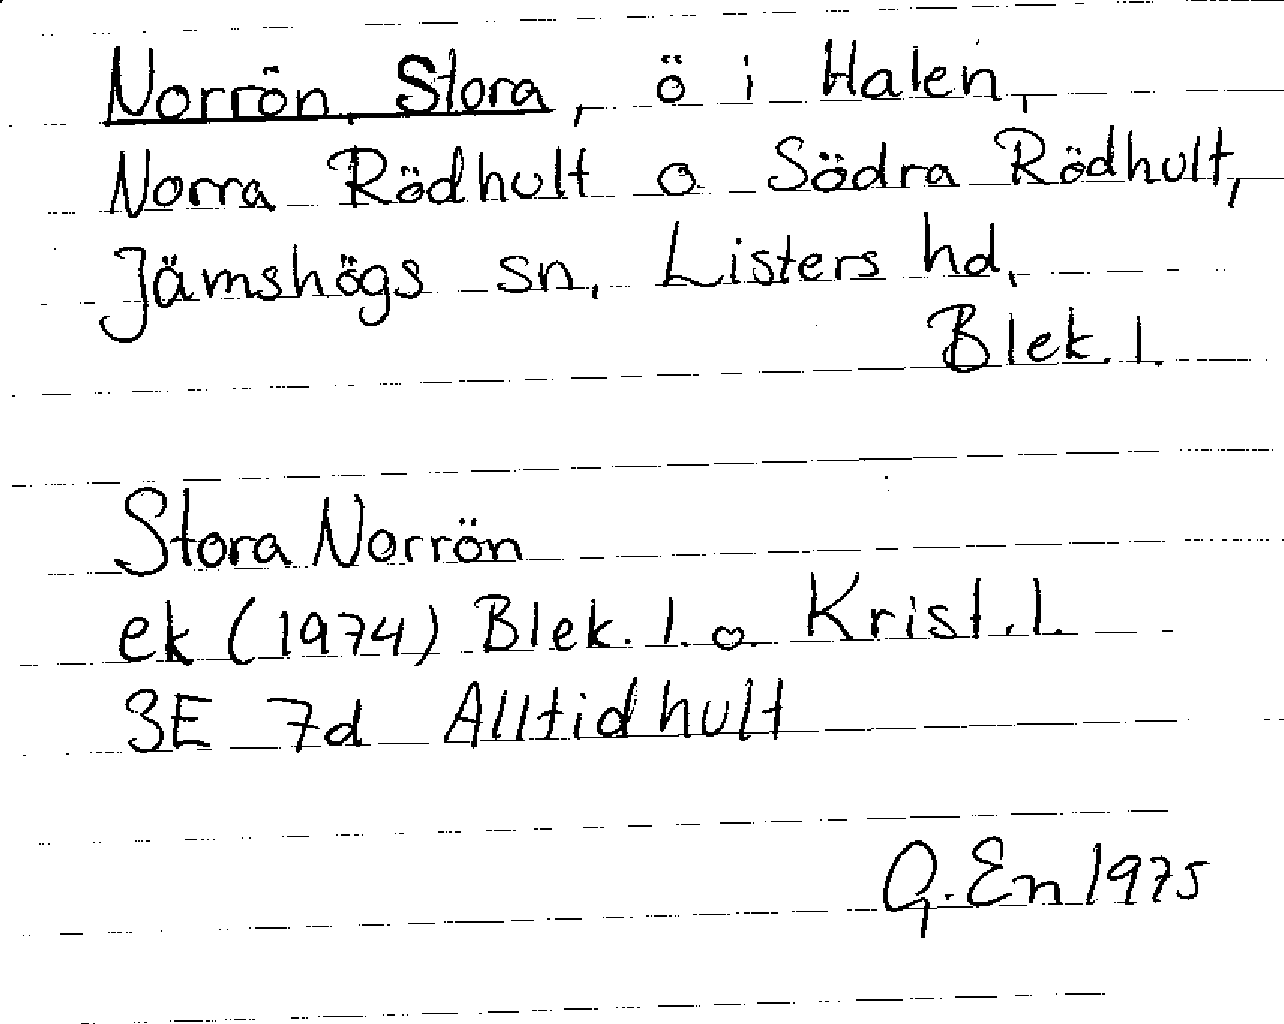 Norrön, Stora, ö i Halen,
Norra Rödhult o Södra Rödhult,
Jämshögs sn, Listers hd,
Blek. l.
Stora Norrön
ek (1974) Blek. l. o. Krist. l.
3E 7d Alltidhult
G. En 1975